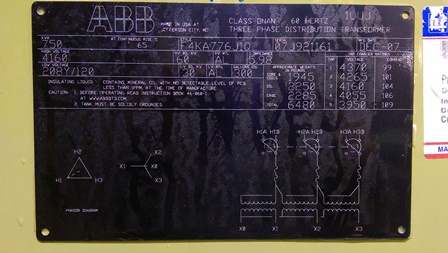 ABB
MADE IN USA AT
JEFFERSON CITY, MO
CLASS ONAN 60 HERTZ
THREE PHASE DISTRIBUTION TRANSFORMER
KVA
750
AT CONTINUOUS RISE °C
65
07J921161
DEC-07
HIGH VOLTAGE
4160
60
AL
5.99
LOW VOLTAGE
208Y/120
30
AL
300
1 4377
2 4265
3 4160
4 4055
5 3950
APPROXIMATE WEIGHTS
CORE &
COILS 1945
OIL 3250
CASE 2285
TOTAL 6480
INSULATING LIQUID CONTAINS MINERAL OIL WITH NO DETECTABLE LEVEL OF PCB,
LESS THAN 2PPM AT THE TIME OF MANUFACTURE
CAUTION : 1. BEFORE OPERATING READ INSTRUCTION BOOK 46-060-
2. TANK MUST BE SOLIDLY GROUNDED.
H1A H1B H2A H2B H3A H3B
H2
H1 H3
X2
X1 X0
X3
PHASOR DIAGRAM
X0 X1 X2 X3